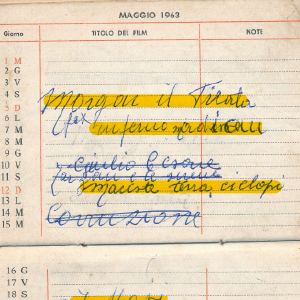 MAGGIO 1963
Giorno TITOLO DEL FILM NOTE
1 M
2 G
3 V
4 S Morgan il Pirata
5 D
6 L
7 M inferno
8 M
9 G
10 V Giulio Cesare
11 S
12 D Maciste terra ciclopi
13 L
14 M Corruzione
15 M
16 G
17 V
18 S